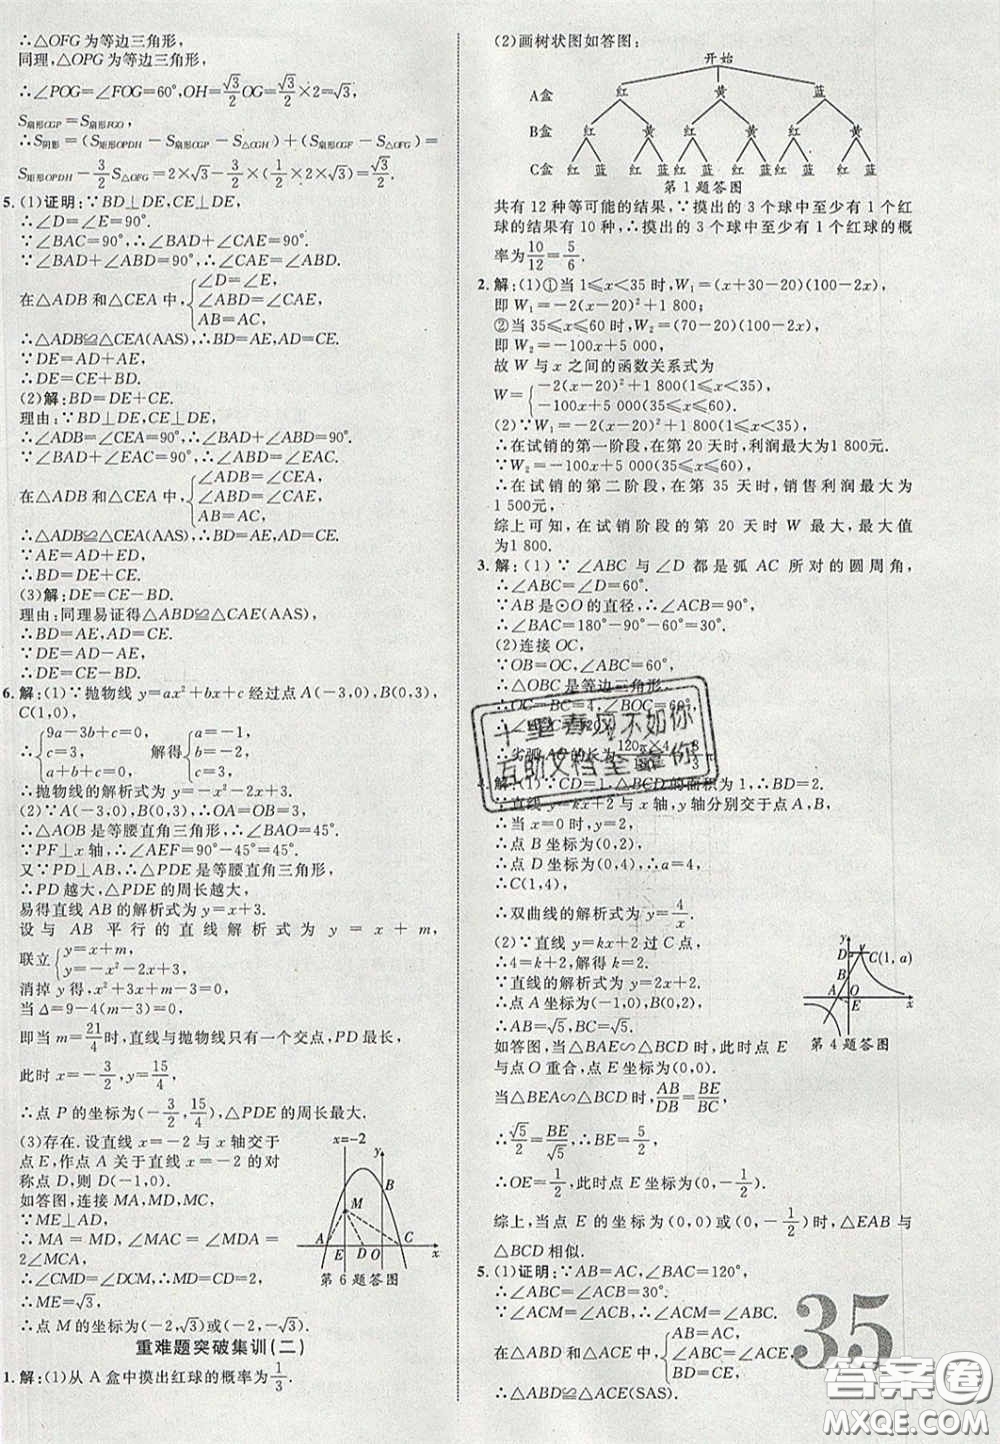 ∴△OFG为等边三角形,
同理,△OPG为等边三角形,
∴∠POG=∠FOG=60°,OH=√3/2 OG=√3/2×2=√3,
S扇形OGP=S扇形FGO,
∴S阴影=(S矩形OPDH-S扇形OGP-S△OGH)+(S扇形FGO-S△OFG)=
S矩形OPDH-3/2 S△OFG=2×√3-3/2×(1/2×2×√3)=√3/2.
5.(1)证明:∵BD⊥DE,CE⊥DE,
∴∠D=∠E=90°.
∵∠BAC=90°,∴∠BAD+∠CAE=90°.
∵∠BAD+∠ABD=90°,∴∠CAE=∠ABD.
在△ADB和△CEA中,{∠D=∠E,
∠ABD=∠CAE,
AB=AC,
∴△ADB≌△CEA(AAS),∴BD=AE,AD=CE.
∵DE=AD+AE,
∴DE=CE+BD.
(2)解:BD=DE+CE.
理由:∵BD⊥DE,CE⊥DE,
∴∠ADB=∠CEA=90°,∴∠ABD+∠BAD=90°.
∵∠BAD+∠EAC=90°,∴∠ABD=∠EAC.
在△ADB和△CEA中,{∠ADB=∠CEA,
∠ABD=∠EAC,
AB=AC,
∴△ADB≌△CEA(AAS),∴BD=AE,AD=CE.
∵AE=AD+ED,
∴BD=DE+CE.
(3)解:DE=CE-BD.
理由:同理易证得△ABD≌△CAE(AAS),
∴BD=AE,AD=CE.
∵DE=AD-AE,
∴DE=CE-BD.
6.解:(1)∵抛物线y=ax²+bx+c经过点A(-3,0),B(0,3),
C(1,0),
∴{9a-3b+c=0,
c=3,
a+b+c=0, 解得{a=-1,
b=-2,
c=3,
∴抛物线的解析式为y=-x²-2x+3.
(2)∵A(-3,0),B(0,3),∴OA=OB=3;
∴△AOB是等腰直角三角形,∴∠BAO=45°.
∵PF⊥x轴,∴∠AEF=90°-45°=45°.
又∵PD⊥AB,∴△PDE是等腰直角三角形,
∴PD越大,△PDE的周长越大,
易得直线AB的解析式为y=x+3.
设与AB平行的直线解析式为y=x+m,
联立{y=x+m,
y=-x²-2x+3,
消掉y得,x²+3x+m-3=0,
当Δ=9-4(m-3)=0,
即当m=21/4时,直线与抛物线只有一个交点,PD最长,
此时x=-3/2,y=15/4,
∴点P的坐标为(-3/2,15/4),△PDE的周长最大.
(3)存在.设直线x=-2与x轴交于
点E,作点A关于直线x=-2的对
称点D,则D(-1,0).
如答图,连接MA,MD,MC,
∵ME⊥AD,
∴MA=MD,∴∠MAC=∠MDA=
2∠MCA,
∴∠CMD=∠DCM,∴MD=CD=2,
∴ME=√3,
∴点M的坐标为(-2,√3)或(-2,-√3).
x=-2
y
B
M
A E D O C x
第6题答图
重难题突破集训(二)
1.解:(1)从A盒中摸出红球的概率为1/3.
(2)画树状图如答图:
开始
A盒 红 黄 蓝
B盒 红 黄 红 黄 红 黄
C盒 红 蓝 红 蓝 红 蓝 红 蓝 红 蓝 红 蓝
第1题答图
共有12种等可能的结果,∵摸出的3个球中至少有1个红
球的结果有10种,∴摸出的3个球中至少有1个红球的概
率为10/12=5/6.
2.解:(1)①当1≤x<35时,W₁=(x+30-20)(100-2x),
即W₁=-2(x-20)²+1 800;
②当35≤x≤60时,W₂=(70-20)(100-2x),
即W₂=-100x+5 000,
故W与x之间的函数关系式为
W={-2(x-20)²+1 800(1≤x<35),
-100x+5 000(35≤x≤60).
(2)∵W₁=-2(x-20)²+1 800(1≤x<35),
∴在试销的第一阶段,在第20天时,利润最大为1 800元.
∵W₂=-100x+5 000(35≤x≤60),
∴在试销的第二阶段,在第35天时,销售利润最大为
1 500元,
综上可知,在试销阶段的第20天时W最大,最大值
为1 800.
3.解:(1)∵∠ABC与∠D都是弧AC所对的圆周角,
∴∠ABC=∠D=60°.
∵AB是⊙O的直径,∴∠ACB=90°,
∴∠BAC=180°-90°-60°=30°.
(2)连接OC,
∵OB=OC,∠ABC=60°,
∴△OBC是等边三角形.
∴OC=BC=4,∠BOC=60°,
∴劣弧 的长为120π×4/180=8/3
十里春风不如你
互助文档全靠你
4.解:(1)∵CD=1,△BCD的面积为1,∴BD=2.
∵直线y=kx+2与x轴,y轴分别交于点A,B,
∴当x=0时,y=2,
∴点B坐标为(0,2),
∴点D坐标为(0,4),∴a=4,
∴C(1,4),
∴双曲线的解析式为y=4/x.
(2)∵直线y=kx+2过C点,
∴4=k+2,解得k=2.
∵直线的解析式为y=2x+2,
∴点A坐标为(-1,0),B(0,2),
∴AB=√5,BC=√5.
如答图,当△BAE∽△BCD时,此时点E
与点O重合,点E坐标为(0,0).
当△BEA∽△BCD时,AB/DB=BE/BC,
∴√5/2=BE/√5,∴BE=5/2,
∴OE=1/2,此时E坐标为(0,-1/2).
综上,当点E的坐标为(0,0)或(0,-1/2)时,△EAB与
△BCD相似.
y
D C(1,a)
B
A O
E x
第4题答图
5.(1)证明:∵AB=AC,∠BAC=120°,
∴∠ABC=∠ACB=30°.
∵∠ACM=∠ACB,∴∠ACM=∠ABC.
在△ABD和△ACE中,{AB=AC,
∠ABC=∠ACE,
BD=CE,
∴△ABD≌△ACE(SAS).
35
答案圈
MXQE.COM